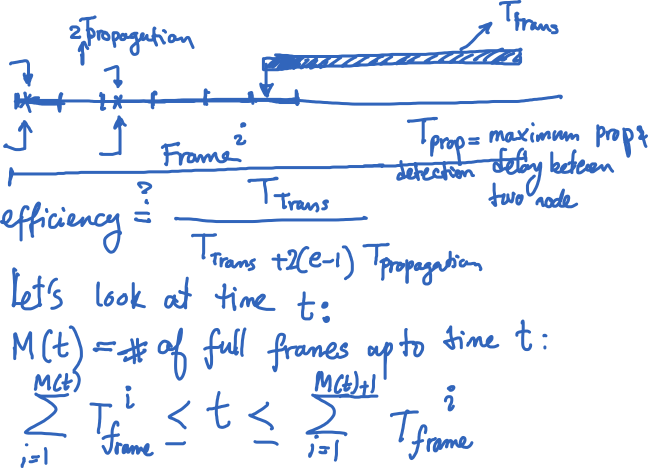 T_trans
2T_propagation
Frame^i
T_prop = maximum prop &
detection delay between
two node
efficiency =^? T_Trans / (T_Trans + 2(e-1) T_propagation)
Let's look at time t:
M(t) = # of full frames up to time t:
\sum_{i=1}^{M(t)} T_frame^i ≤ t ≤ \sum_{i=1}^{M(t)+1} T_frame^i